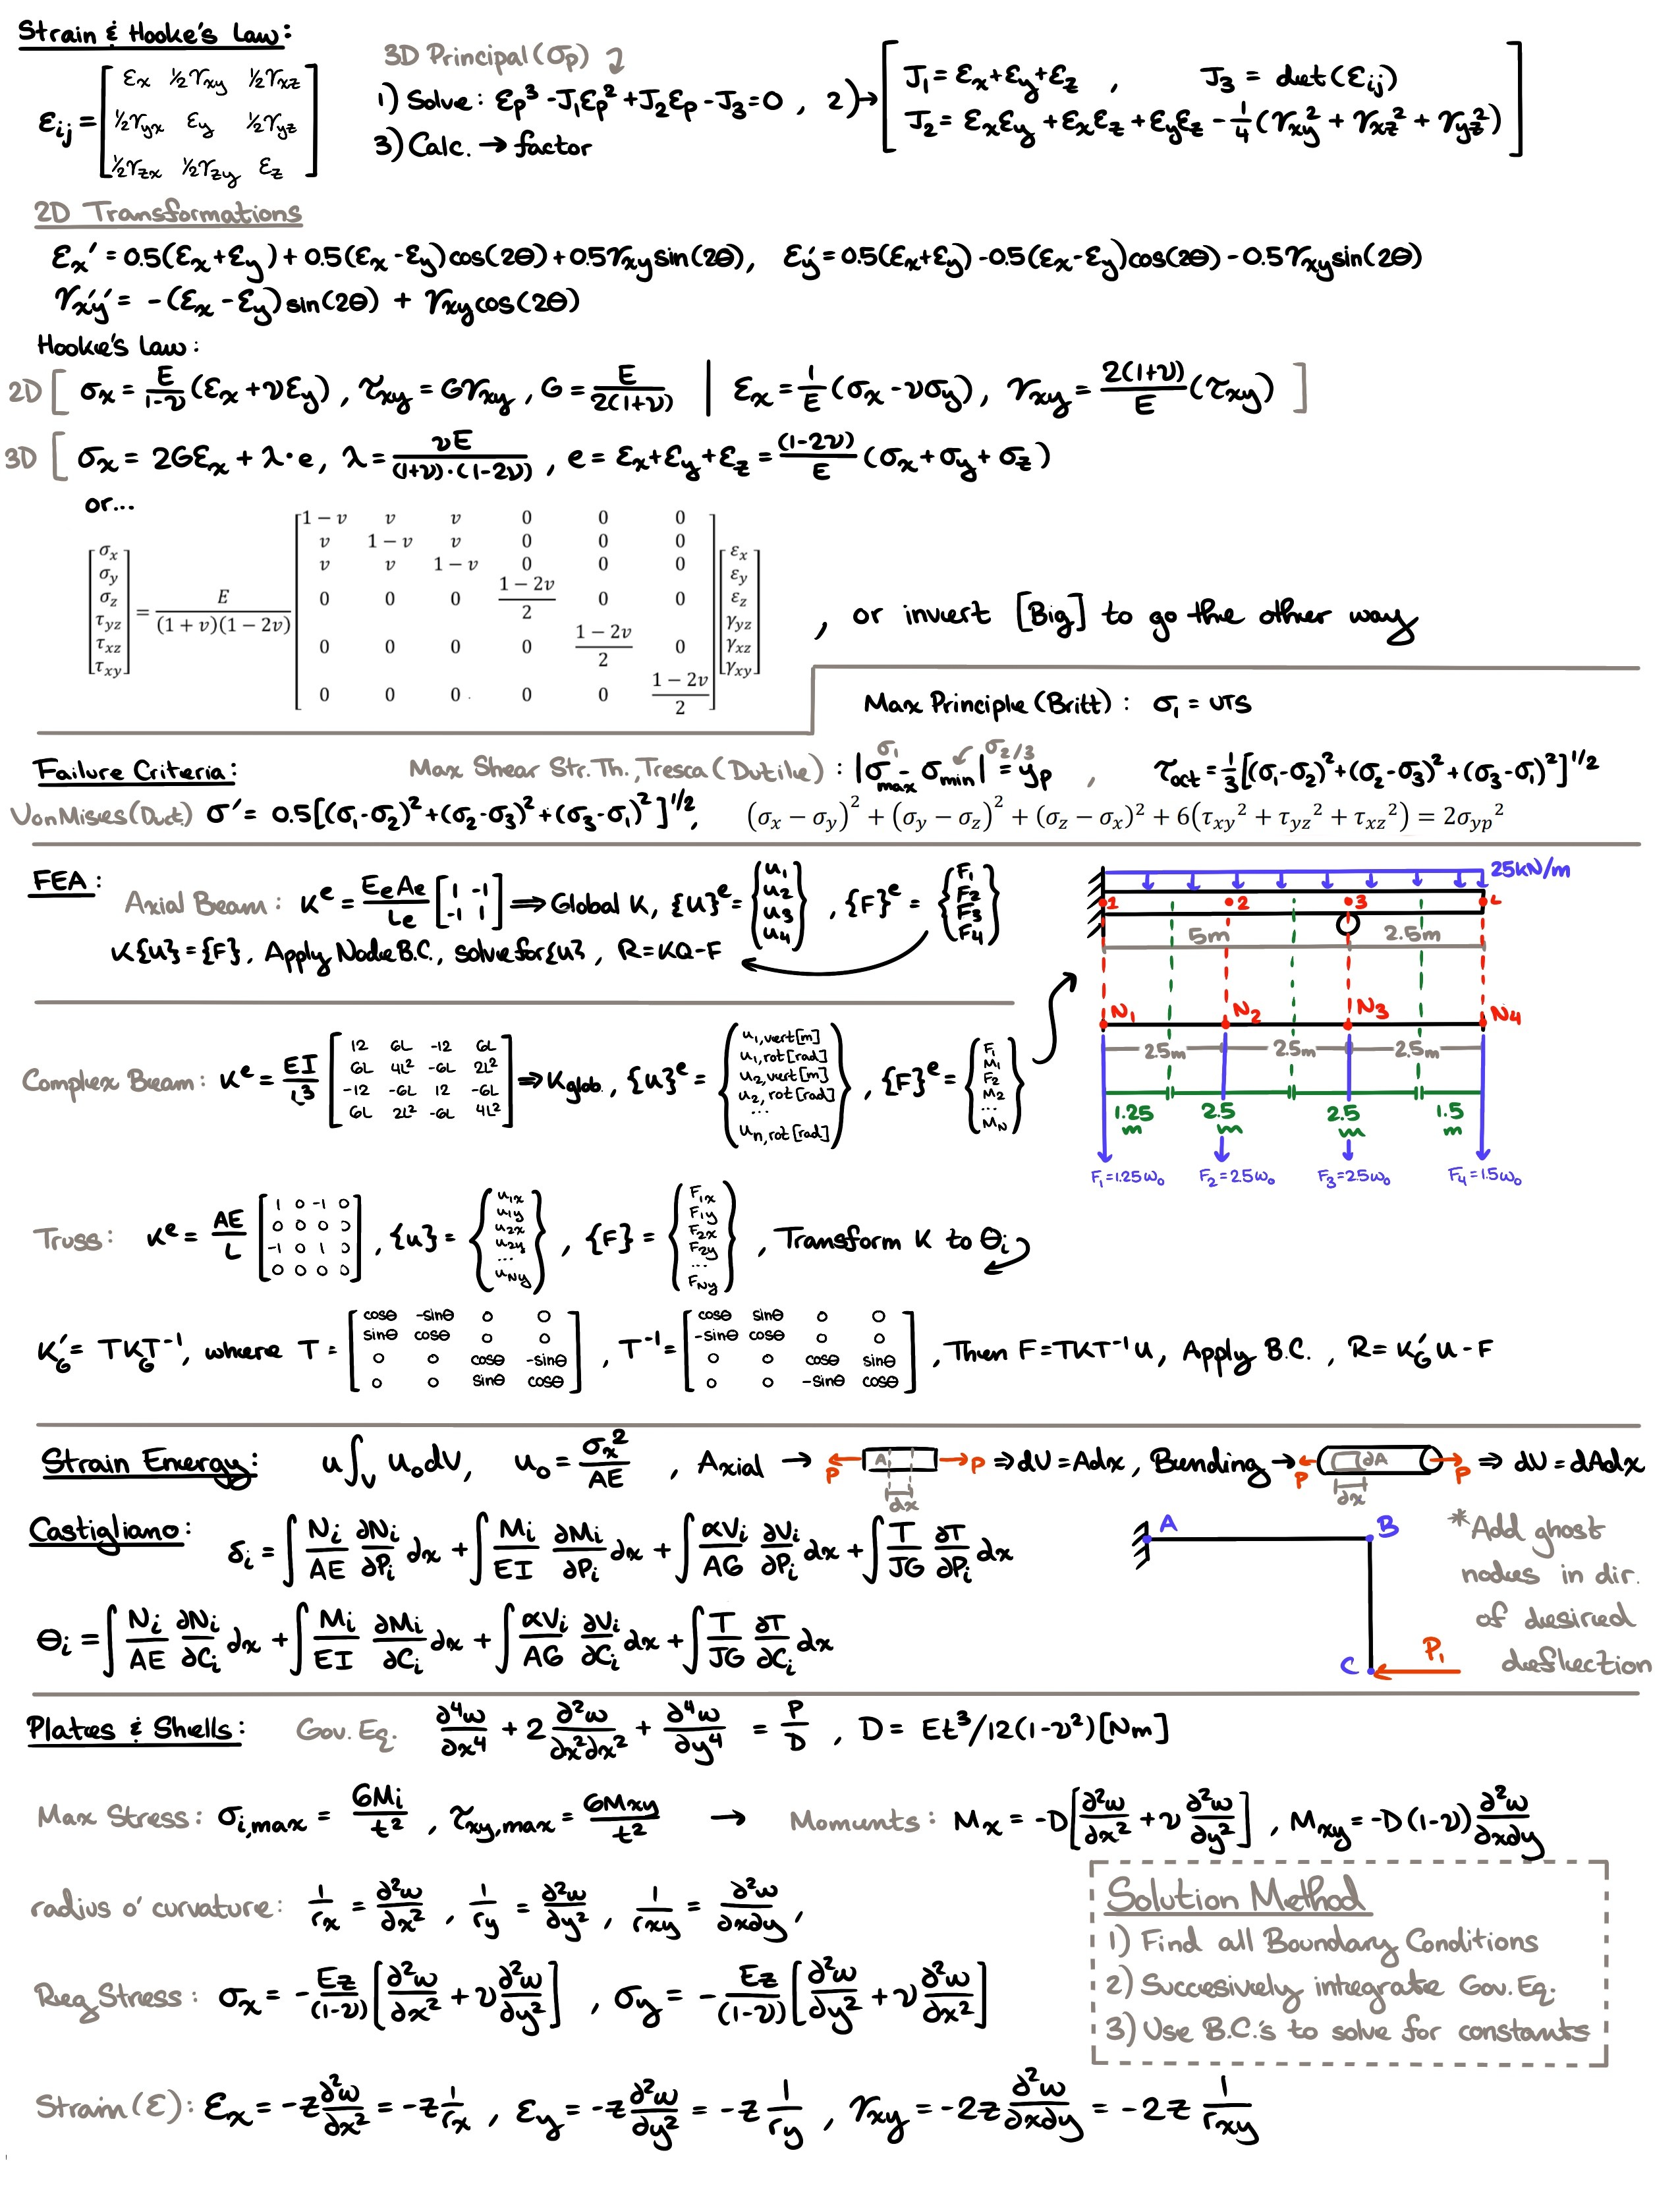 Strain & Hooke's Law:
εij = [εx ½γxy ½γxz
½γyx εy ½γyz
½γzx ½γzy εz]
3D Principal (σp)
1) Solve: εp³ - J₁εp² + J₂εp - J₃ = 0 , 2) → [J₁ = εx + εy + εz , J₃ = det(εij)
J₂ = εxεy + εxεz + εyεz - 1/4(γxy² + γxz² + γyz²)]
3) Calc. → factor
2D Transformations
εx' = 0.5(εx+εy) + 0.5(εx-εy)cos(2θ) + 0.5γxysin(2θ), εy' = 0.5(εx+εy) - 0.5(εx-εy)cos(2θ) - 0.5γxysin(2θ)
γx'y' = -(εx-εy)sin(2θ) + γxycos(2θ)
Hooke's Law:
2D [ σx = E/(1-ν) (εx + νεy), τxy = Gγxy, G = E/2(1+ν) | εx = 1/E (σx - νσy), γxy = 2(1+ν)/E (τxy) ]
3D [ σx = 2Gεx + λ·e, λ = νE/(1+ν)·(1-2ν), e = εx+εy+εz = (1-2ν)/E (σx + σy + σz)
or...
[σx σy σz τyz τxz τxy] = E/(1+v)(1-2v) [1-v v v 0 0 0
v 1-v v 0 0 0
v v 1-v 0 0 0
0 0 0 (1-2v)/2 0 0
0 0 0 0 (1-2v)/2 0
0 0 0 0 0 (1-2v)/2] [εx εy εz γyz γxz γxy]
, or invert [Big] to go the other way
Max Principle (Britt) : σ₁ = UTS
Failure Criteria:
Max Shear Str. Th., Tresca (Dutile) : |σmax - σmin| = yp , τoct = 1/3[(σ₁-σ₂)²+(σ₂-σ₃)²+(σ₃-σ₁)²]^1/2
σ₁ σ2/3
Von Mises (Duct.) σ' = 0.5[(σ₁-σ₂)²+(σ₂-σ₃)²+(σ₃-σ₁)²]^1/2, (σx - σy)² + (σy - σz)² + (σz - σx)² + 6(τxy² + τyz² + τxz²) = 2σyp²
FEA:
Axial Beam: Kᵉ = EeAe/Le [1 -1
-1 1] ⇒ Global K, {U}ᵉ = {u₁ u₂ u₃ u₄}, {F}ᵉ = {F₁ F₂ F₃ F₄}
K{U} = {F}, Apply Node B.C., solve for {U}, R = KQ - F
25kN/m
1 2 3 4
5m 2.5m
N₁ N₂ N₃ N₄
2.5m 2.5m 2.5m
1.25 m 2.5 m 2.5 m 1.5 m
F₁=1.25ω₀ F₂=2.5ω₀ F₃=2.5ω₀ F₄=1.5ω₀
Complex Beam: Kᵉ = EI/L³ [12 6L -12 6L
6L 4L² -6L 2L²
-12 -6L 12 -6L
6L 2L² -6L 4L²] ⇒ Kglob., {u}ᵉ = {u1,vert[m] u1,rot[rad] u2,vert[m] u2,rot[rad] ... un,rot[rad]}, {F}ᵉ = {F₁ M₁ F₂ M₂ ... MN}
Truss: Kᵉ = AE/L [1 0 -1 0
0 0 0 0
-1 0 1 0
0 0 0 0], {u} = {u1x u1y u2x u2y ... uNy}, {F} = {F1x F1y F2x F2y ... FNy}, Transform K to θi
K'G = TKGT⁻¹, where T = [cosθ -sinθ 0 0
sinθ cosθ 0 0
0 0 cosθ -sinθ
0 0 sinθ cosθ], T⁻¹ = [cosθ sinθ 0 0
-sinθ cosθ 0 0
0 0 cosθ sinθ
0 0 -sinθ cosθ], Then F = TKT⁻¹U, Apply B.C., R = K'G U - F
Strain Energy: u∫v u₀dV, u₀ = σx²/AE , Axial → P A P dx ⇒ dV = Adx, Bending → P ∂A P ∂x ⇒ dV = dAdx
Castigliano: δi = ∫ Ni/AE ∂Ni/∂Pi dx + ∫ Mi/EI ∂Mi/∂Pi dx + ∫ αVi/AG ∂Vi/∂Pi dx + ∫ T/JG ∂T/∂Pi dx
θi = ∫ Ni/AE ∂Ni/∂Ci dx + ∫ Mi/EI ∂Mi/∂Ci dx + ∫ αVi/AG ∂Vi/∂Ci dx + ∫ T/JG ∂T/∂Ci dx
A B C P₁
*Add ghost
nodes in dir.
of desired
deflection
Plates & Shells: Gov. Eq. ∂⁴w/∂x⁴ + 2 ∂²w/∂x²∂x² + ∂⁴w/∂y⁴ = P/D , D = Et³/12(1-ν²)[Nm]
Max Stress: σi,max = 6Mi/t² , τxy,max = 6Mxy/t² → Moments: Mx = -D[∂²w/∂x² + ν ∂²w/∂y²], Mxy = -D(1-ν) ∂²w/∂x∂y
radius o' curvature: 1/rx = ∂²w/∂x² , 1/ry = ∂²w/∂y² , 1/rxy = ∂²w/∂x∂y ,
Reg Stress: σx = -Ez/(1-ν) [∂²w/∂x² + ν ∂²w/∂y²] , σy = -Ez/(1-ν) [∂²w/∂y² + ν ∂²w/∂x²]
Solution Method
1) Find all Boundary Conditions
2) Succesively integrate Gov. Eq.
3) Use B.C.'s to solve for constants
Strain (ε): εx = -z ∂²w/∂x² = -z 1/rx , εy = -z ∂²w/∂y² = -z 1/ry , γxy = -2z ∂²w/∂x∂y = -2z 1/rxy